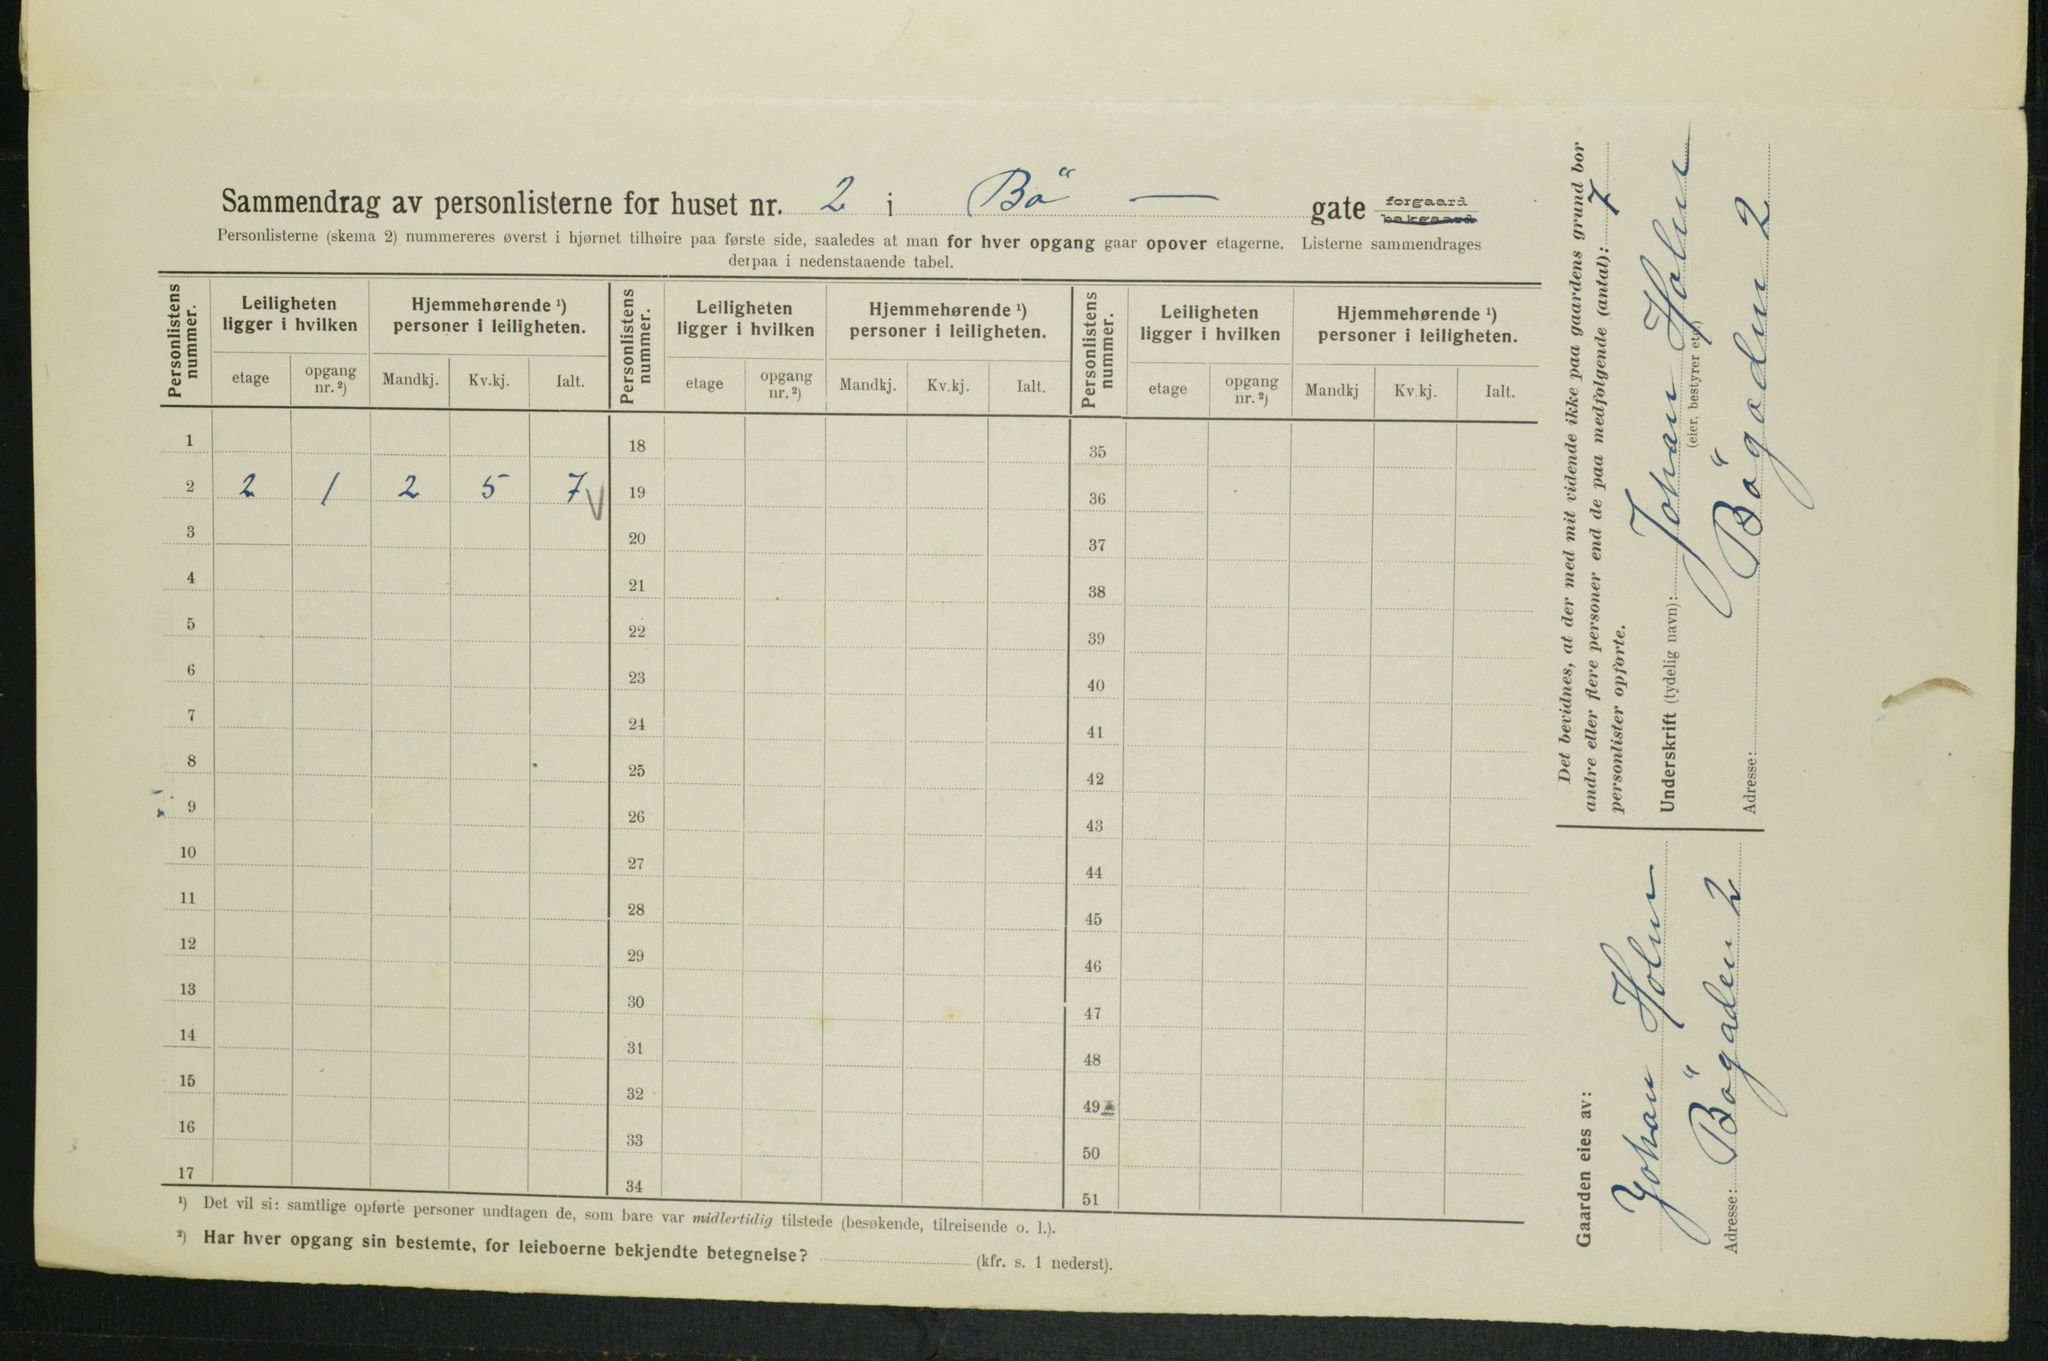 Sammendrag av personlisterne for huset nr. 2 i Bö — gate forgaard bakgaard
Personlisterne (skema 2) nummereres øverst i hjørnet tilhøire paa første side, saaledes at man for hver opgang gaar opover etagerne. Listerne sammendrages
derpaa i nedenstaaende tabel.
Personlistens nummer. Leiligheten ligger i hvilken Hjemmehørende ¹) personer i leiligheten. Personlistens nummer. Leiligheten ligger i hvilken Hjemmehørende ¹) personer i leiligheten. Personlistens nummer. Leiligheten ligger i hvilken Hjemmehørende ¹) personer i leiligheten.
etage opgang nr. ²) Mandkj. Kv.kj. Ialt. etage opgang nr. ²) Mandkj. Kv.kj. Ialt. etage opgang nr. ²) Mandkj Kv.kj. Ialt.
1 18 35
2 2 1 2 5 7 19 36
3 20 37
4 21 38
5 22 39
6 23 40
7 24 41
8 25 42
9 26 43
10 27 44
11 28 45
12 29 46
13 30 47
14 31 48
15 32 49
16 33 50
17 34 51
¹) Det vil si: samtlige opførte personer undtagen de, som bare var midlertidig tilstede (besøkende, tilreisende o. l.).
²) Har hver opgang sin bestemte, for leieboerne bekjendte betegnelse? (kfr. s. 1 nederst).
Det bevidnes, at der med mit vidende ikke paa gaardens grund bor
andre eller flere personer end de paa medfølgende (antal): 7
personlister opførte.
Underskrift (tydelig navn): Johan Holm
(eier, bestyrer etc.)
Adresse: Bögaden 2
Gaarden eies av:
Johan Holm
Adresse: Bögaden 2